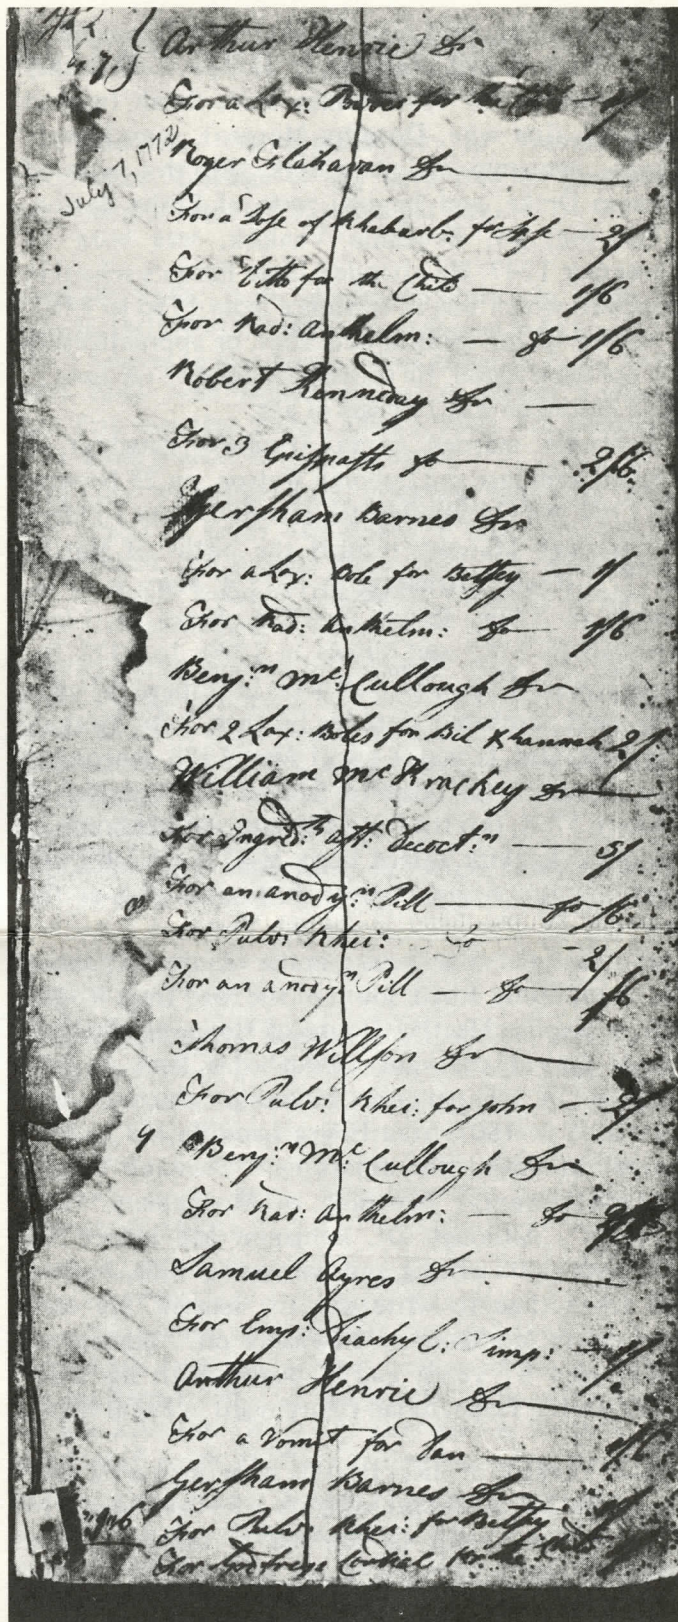 Arthur Henrie Dr
For a Lax: Bolus for the Child — 1/
July 7, 1772
Roger Glahavan Dr
For a Dose of Rhubarb: — 2/
For Ditto for the Child — 1/6
For Rad: Anthelm: — do 1/6
Robert Kenneday Dr —
For 3 Epispasts do — 2/6
Gersham Barnes Dr
For a Lax: Bole for Betsey — 1/
For Rad: Anthelm: do — 1/6
Benj:n Mc:Cullough Dr
For 2 Lax: Boles for Bil & hannah 2/
William McKrackey Dr —
For Ingred:ts Decoct:n — 5/
For an anody:n Pill — do /6
For Pulv: Rhei: do - 2/
For an anody:n Pill — do — /6
Thomas Willson Dr —
For Pulv: Rhei: for John — 2/
9
Benj:n Mc:Cullough Dr
For Rad: Anthelm: — do
Samuel Ayres Dr —
For Emp: Diachyl: Simp: — 1/
Arthur Henrie Dr —
For a Vomit for Dan — 1/6
Gersham Barnes Dr
For Pulv: Rhei: for Betsey
For Godfreys Cordial for the Child